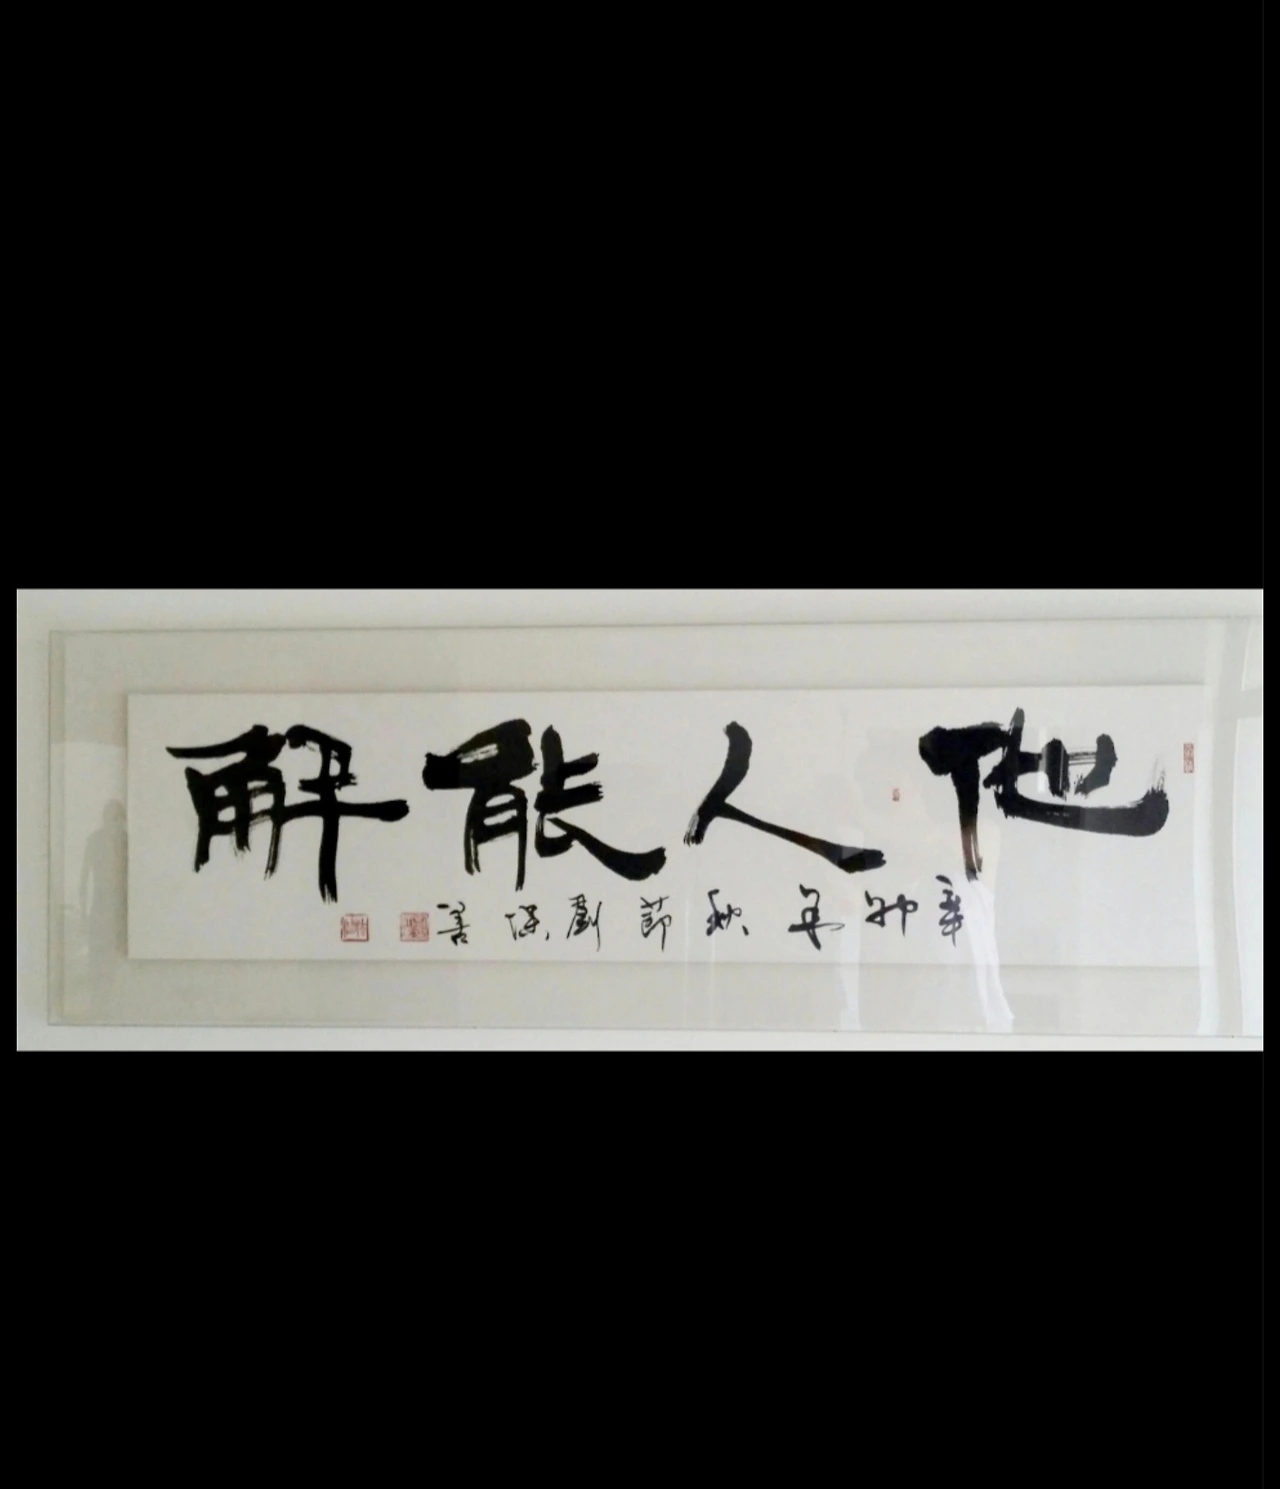 他人能解
辛卯年秋節劉保善